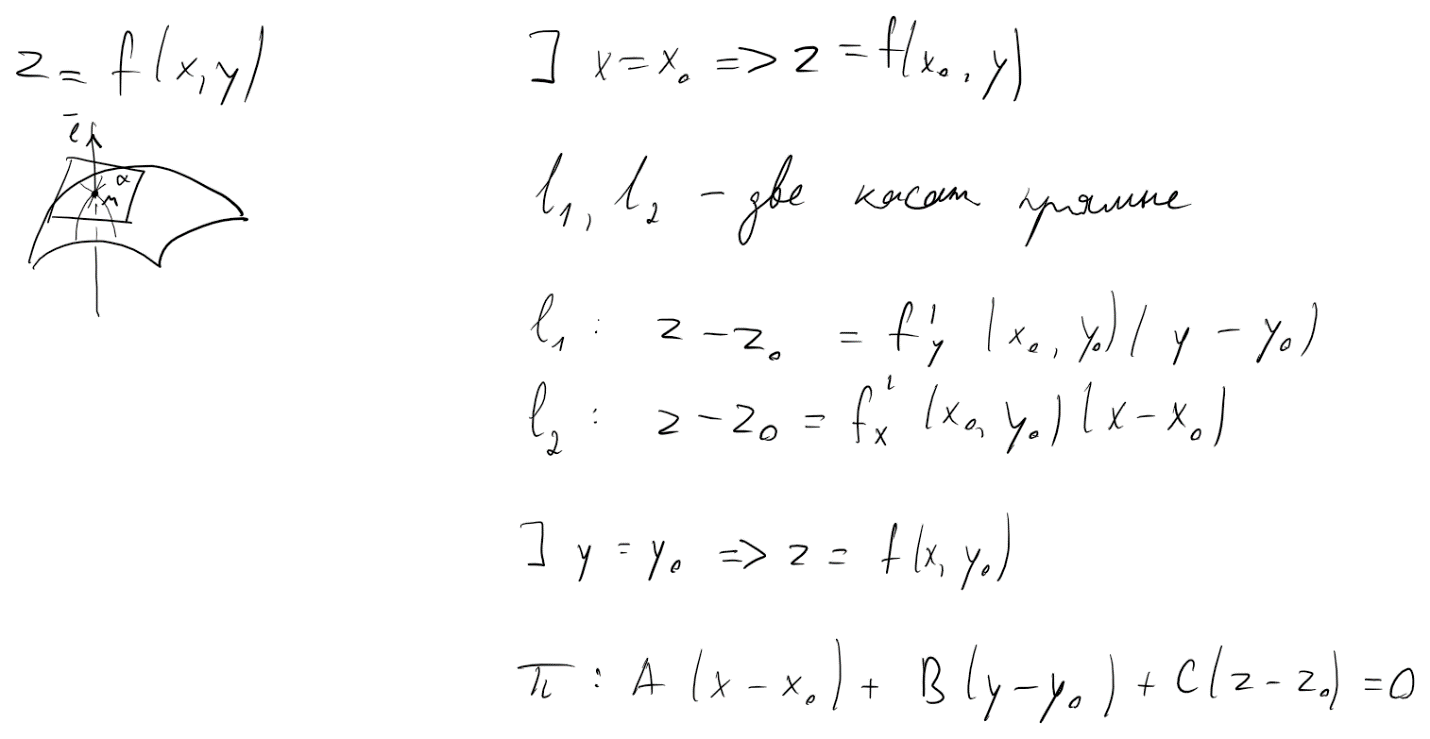 z = f(x, y)
ē
α
M
] x = x₀ => z = f(x₀, y)
l₁, l₂ – две касат прямые
l₁ : z – z₀ = f'y (x₀, y₀)(y – y₀)
l₂ : z – z₀ = f'x (x₀, y₀)(x – x₀)
] y = y₀ => z = f(x, y₀)
π : A(x – x₀) + B(y – y₀) + C(z – z₀) = 0